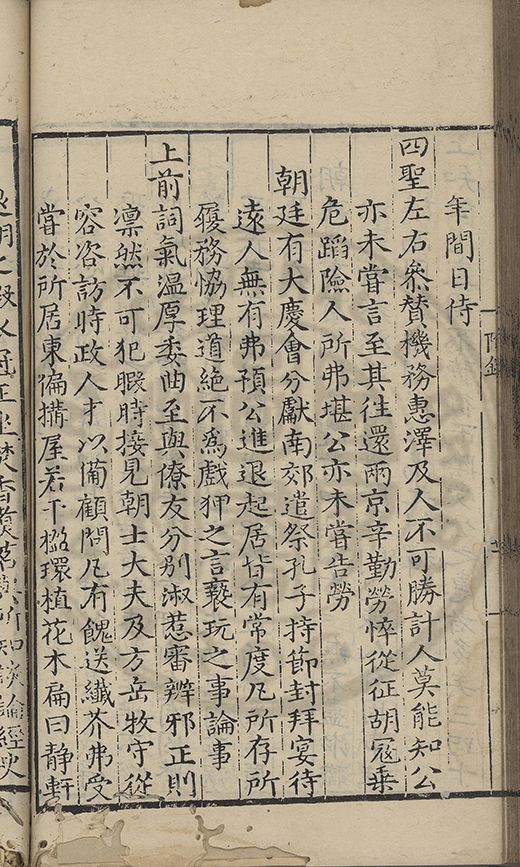 年間日侍
四聖左右叅賛機務惠澤及人不可勝計人莫能知公
亦未嘗言至其往還兩京辛勤勞悴從征胡冦乗
危蹈險人所弗堪公亦未嘗告勞
朝廷有大慶會分獻南郊遣祭孔子持節封拜宴待
逺人無有弗預公進退起居皆有常度凡所存所
履務恊理道絶不爲戲狎之言䙝玩之事論事
上前詞氣温厚委曲至與僚友分别淑慝審辨邪正則
凛然不可犯暇時接見朝士大夫及方岳牧守從
容咨訪時政人才以備顧問凡有餽送纎芥弗受
嘗於所居東偏搆屋若干楹環植花木扁曰静軒